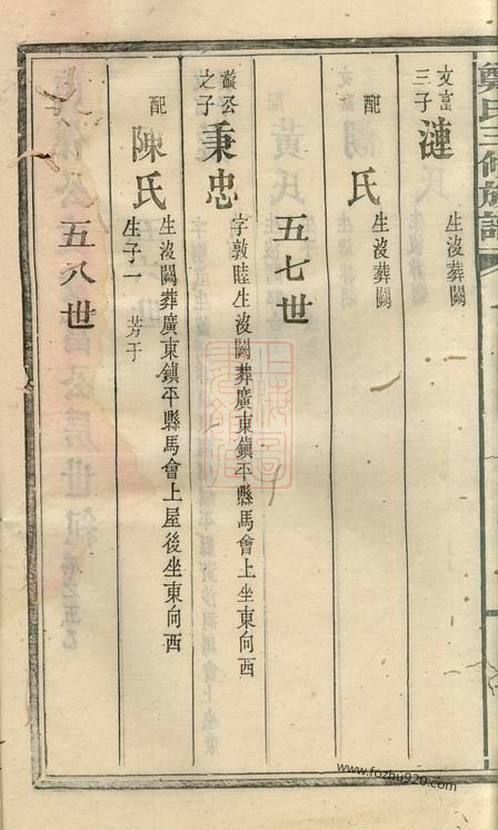 鄭氏三修族譜
文富三子 漣 生沒葬闕
配 氏 生沒葬闕
五七世
漣公之子 秉忠 字敦睦生沒闕葬廣東鎮平縣馬會上坐東向西
配 陳氏 生沒闕葬廣東鎮平縣馬會上屋後坐東向西
生子一 芳于
五八世
www.fozhu920.com